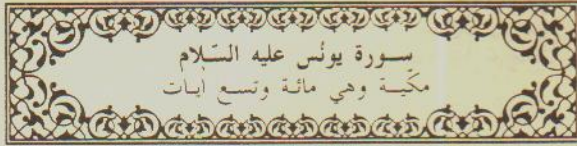 سورة يونس عليه السّلام
مكّيّة وهي مائة وتسع آيات